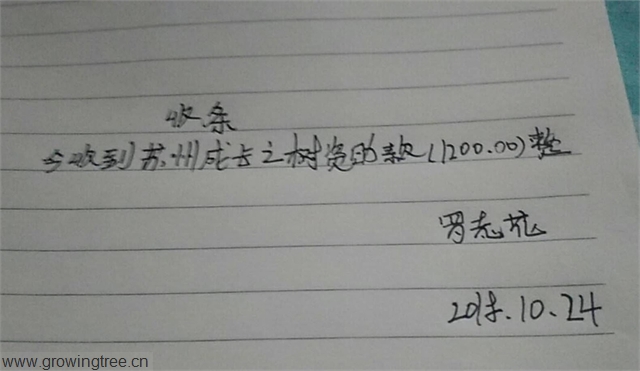 收条
今收到苏州成长之树资助款(1200.00)整
罗志
2018.10.24
www.growingtree.cn